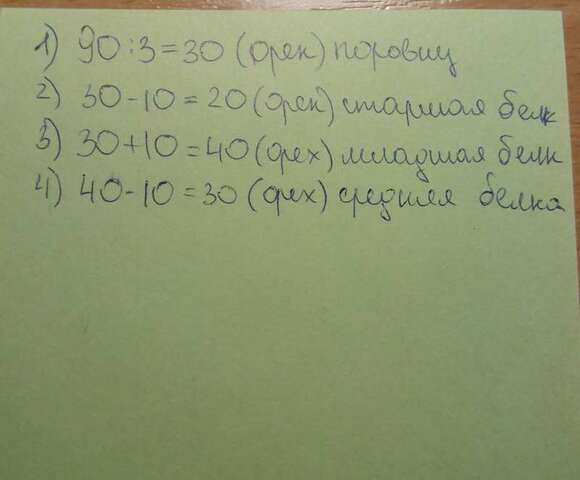 1) 90:3=30 (орех) поровну
2) 30-10=20 (орех) старшая белк
3) 30+10=40 (орех) младшая белк
4) 40-10=30 (орех) средняя белка